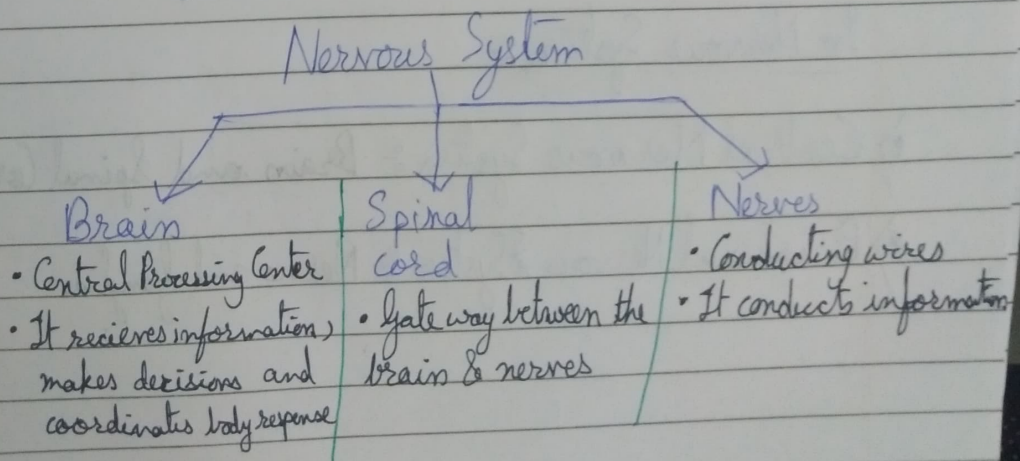 Nervous System
Brain
• Central Processing Center
• It recieves information,
makes decisions and
coordinates body response
Spinal
cord
• Gateway between the
brain & nerves
Nerves
• Conducting wires
• It conducts information